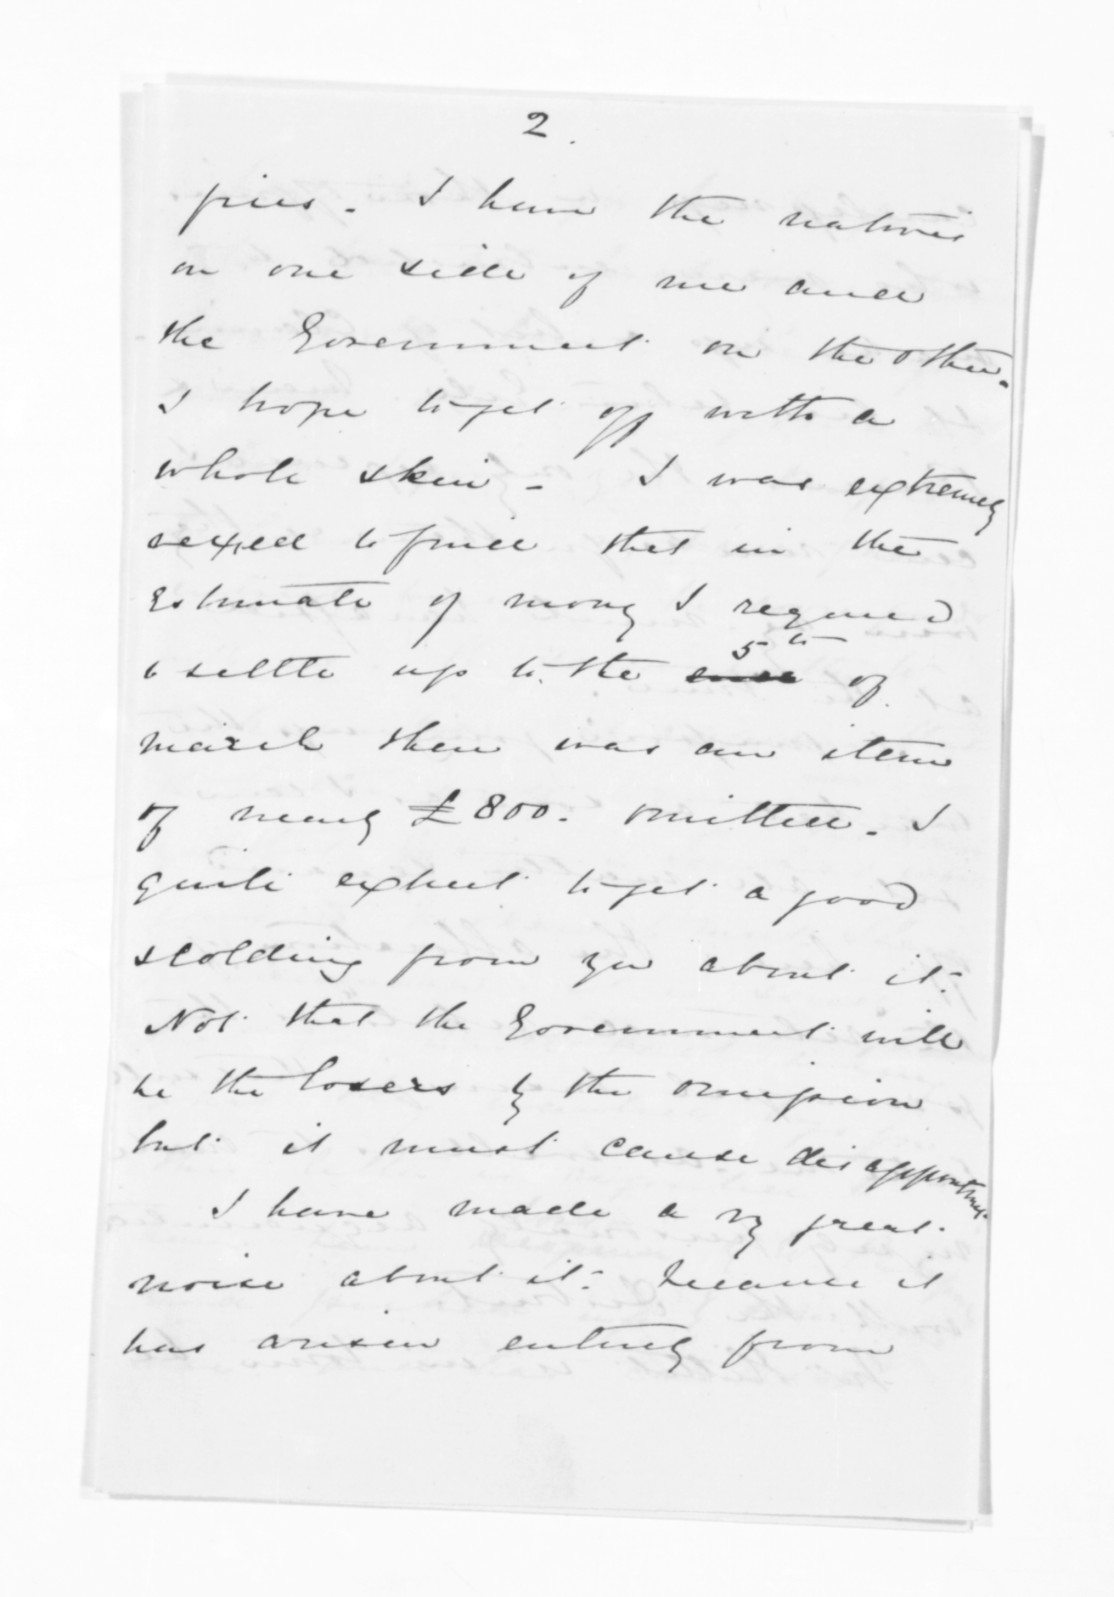 2.
fires. I have the natives
on one side of me and
the Government on the other.
I hope to get off with a
whole skin - I was extremely
vexed to find that in the
Estimate of money I required
to settle up to the end 5th of
march there was an item
of nearly £800. omitted. I
quite expect to get a good
scolding from you about it.
Not that the Government will
be the losers by the omission
but it must cause disappointment
I have made a vy great
noise about it. because it
has arisen entirely from